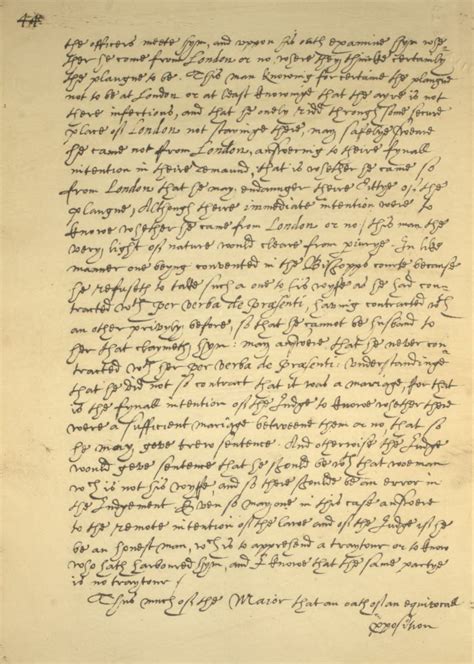 44
the officers meete hym, and uppon his oath examine hym whe-
ther he come from London or no, where they thinke certainly
the plaugne to be. This man knowing for certaine the plaugne
not to be at London or at least knowinge that the ayre is not
there infectious, and that he onely ridd through some secure
place of London not stayinge there, may safelye sweare
he came not from London, answering to theire fynall
intention in theire demaund, that is whether he came so
from London that he may endaunger theire Cittye of the
plaugne, Although theire immediate intention were to
knowe whether he came from London or no; this man the
very light of nature would cleare from periury. In like
manner one beyng convented in the Bishopps courte because
he refuseth to take such a one to his wyfe as he had con-
tracted wth per verba de præsenti, having contracted wth
an other privyly before, so that he cannot be husband to
her that claymeth hym: may answere that he never con-
tracted wth her per verba de præsenti, understandinge
that he did not so contract that it was a mariage, for that
is the fynall intention of the Judge to knowe whether there
were a sufficient mariage betweene them or no, that so
he may geve trew sentence. And otherwise the Judge
would geve sentence that he should be wth that woeman
wch is not his wyfe, and so there shoulde be an error in
the Judgement Even so may one in this case answere
to the remote intention of the lawe and of the Judge if he
be an honest man, wch is to apprehend a traytour or to know
who hath harboured hym, and I knowe that the same partye
is no traytour
Thus much of the Maior that an oath of an equivocall
pposition